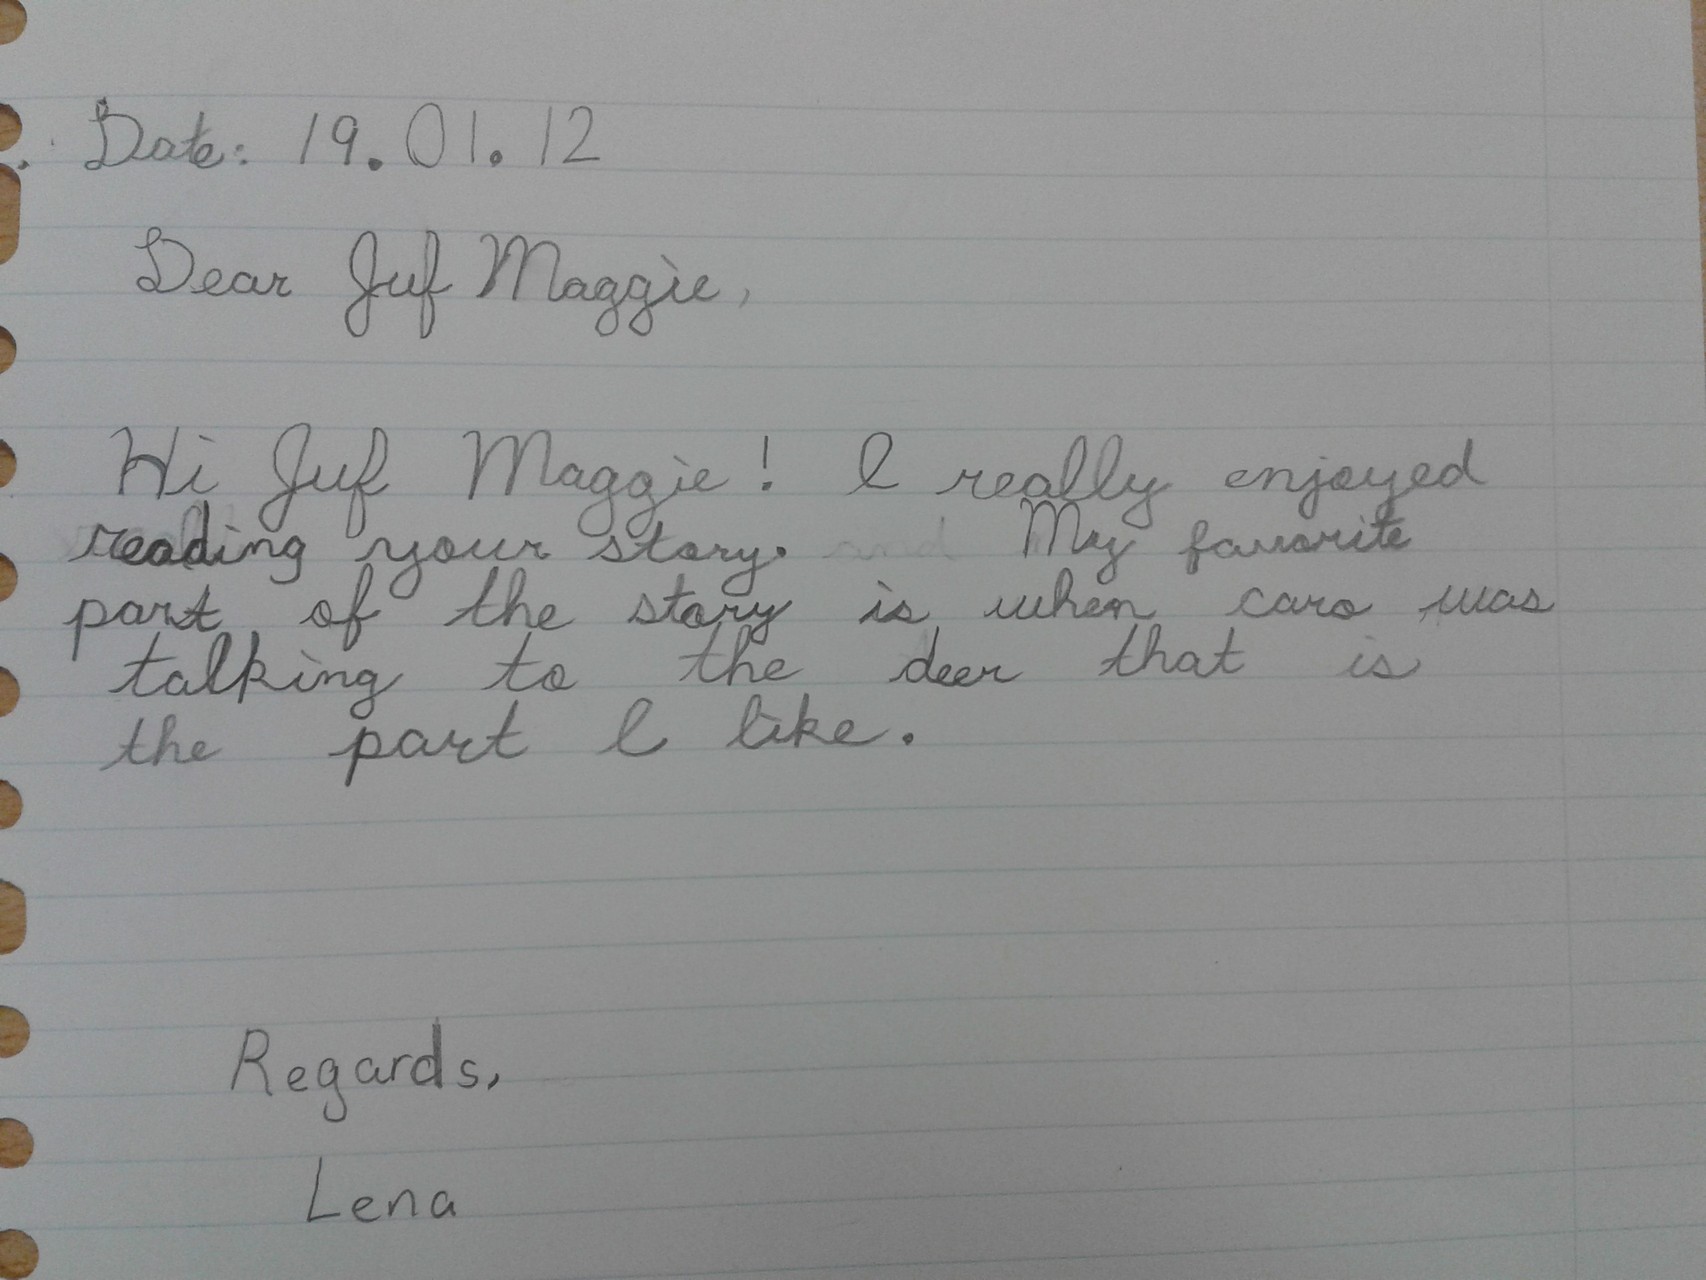 Date: 19.01.12
Dear Juf Maggie,
Hi Juf Maggie! I really enjoyed
reading your story. My favorite
part of the story is when caro was
talking to the deer that is
the part I like.
Regards,
Lena